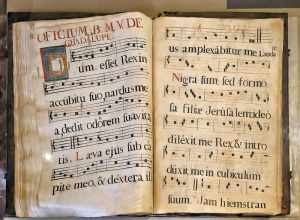 OFICIUM. B. M. V. DE
GUADALUPE.
Dum esset Rex in
accubitu suo nardus me
a dedit odorem suavita
tis. Læva ejus sub ca
pite meo, & dextera il
us amplexabitur me
Nigra sum sed formo
sa filiæ Jerusalem ideo
dilexit me Rex & intro
duxit me in cubiculum
suum. Jam hiems tran